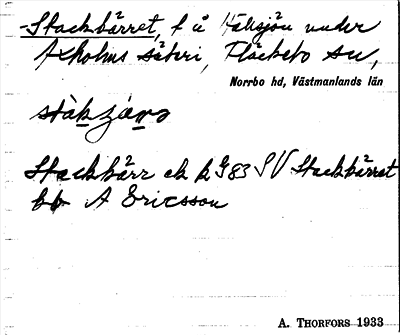 -Stackbärret, f å Hälsjön under
Axholms säteri, Fläckebo sn,
Norrbo hd, Västmanlands län
Stackbärr ek k G 83 SV Stackbärret
bb A Ericsson
A. THORFORS 1933